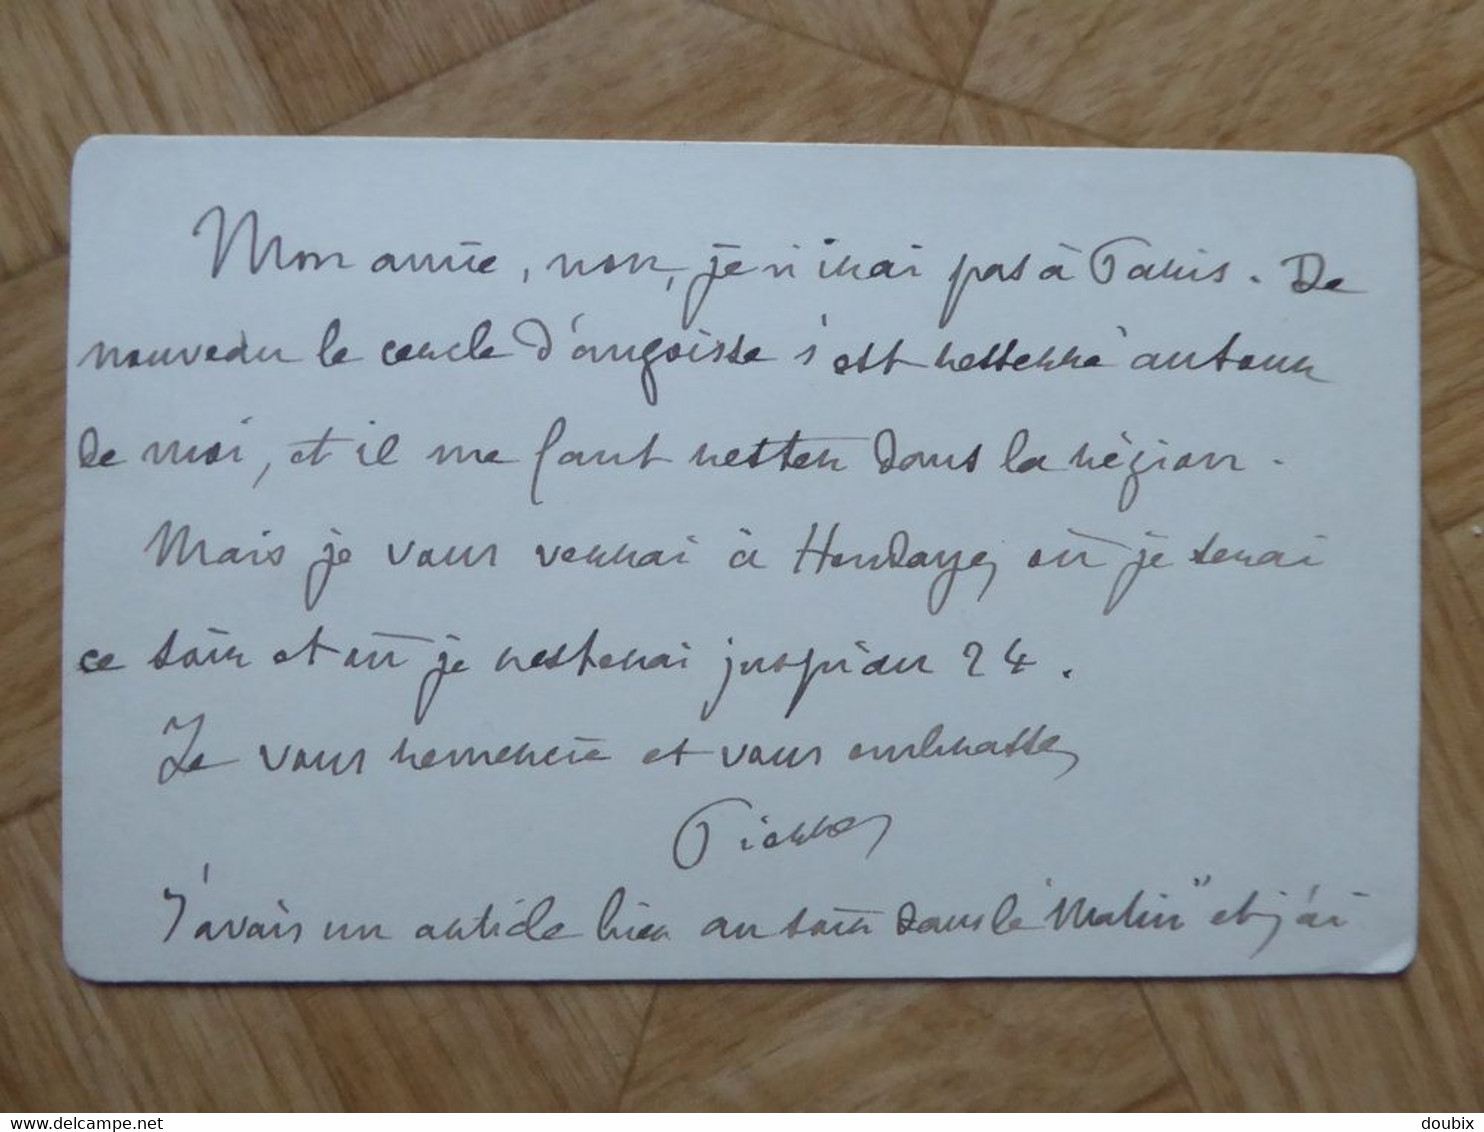 Mon amie, non, je n'irai pas à Paris. De
nouveau le cercle d'angoisse s'est resserré autour
de moi, et il me faut rester dans la région.
Mais je vous verrai à Hendaye, où je serai
ce soir et où je resterai jusqu'au 24.
Je vous remercie et vous embrasse,
Pierre
J'avais un article hier au soir dans le "Matin" et j'ai
www.delcampe.net
doubix